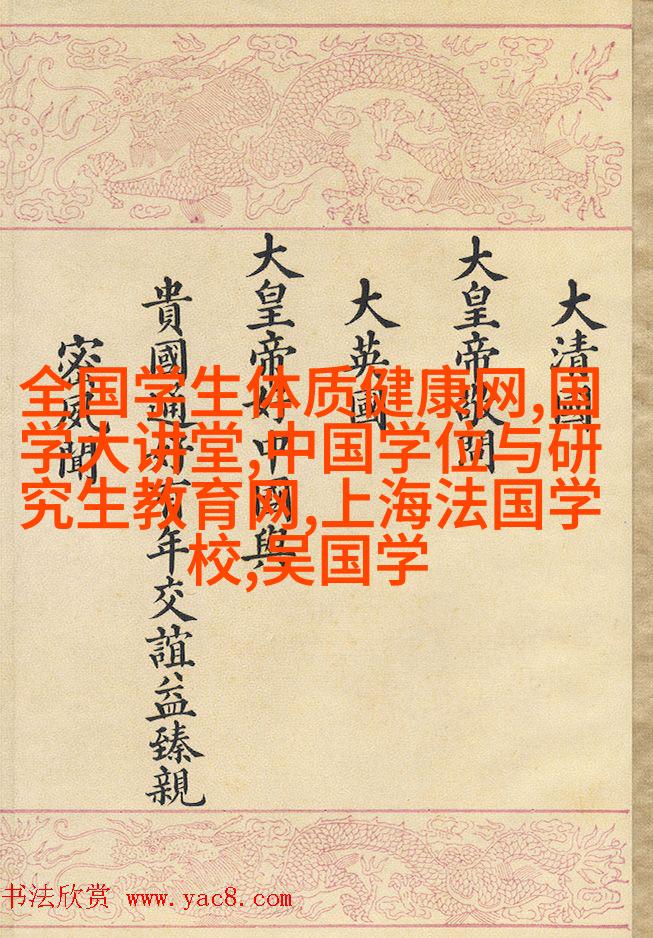 大清國
大皇帝敬問
大英國
大皇帝好中國與
貴國通好有年交誼益臻親
密夙聞
全国学生体质健康网,国
学大讲堂,中国学位与研
究生教育网,上海法国学
校,吴国学
书法欣赏 www.yac8.com